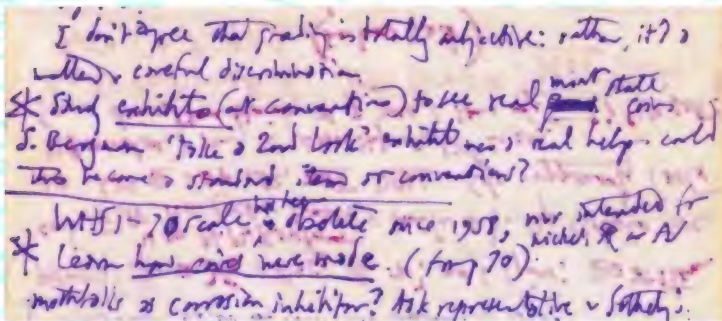 I don't agree that grading is totally subjective: rather, it's a
matter of careful discrimination.
* Study exhibits (at conventions) to see real mint state coins
S. Bergman 'Take a 2nd Look' exhibit was a real help - could
this become a standard item at conventions?
WHS 1-70 scale has been obsolete since 1958, never intended for nickel, AR or AV
* Learn how coins were made. (from 70)
mothballs as corrosion inhibitor? Ask representative of Sotheby's.